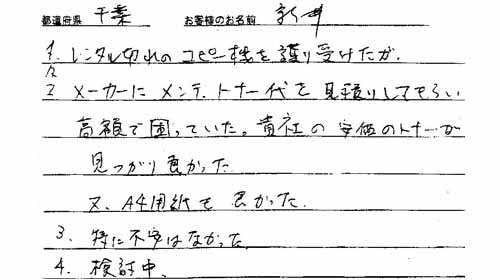 都道府県 千葉 お客様のお名前 新井
1. レンタル切れのコピー機を譲り受けたが.
2
2 メーカーにメンテ.トナー代を見積りしてもらい
高額で困っていた。貴社の安価のトナーが
見つかり良かった
又、A4用紙も良かった.
3. 特に不安はなかった
4. 検討中.